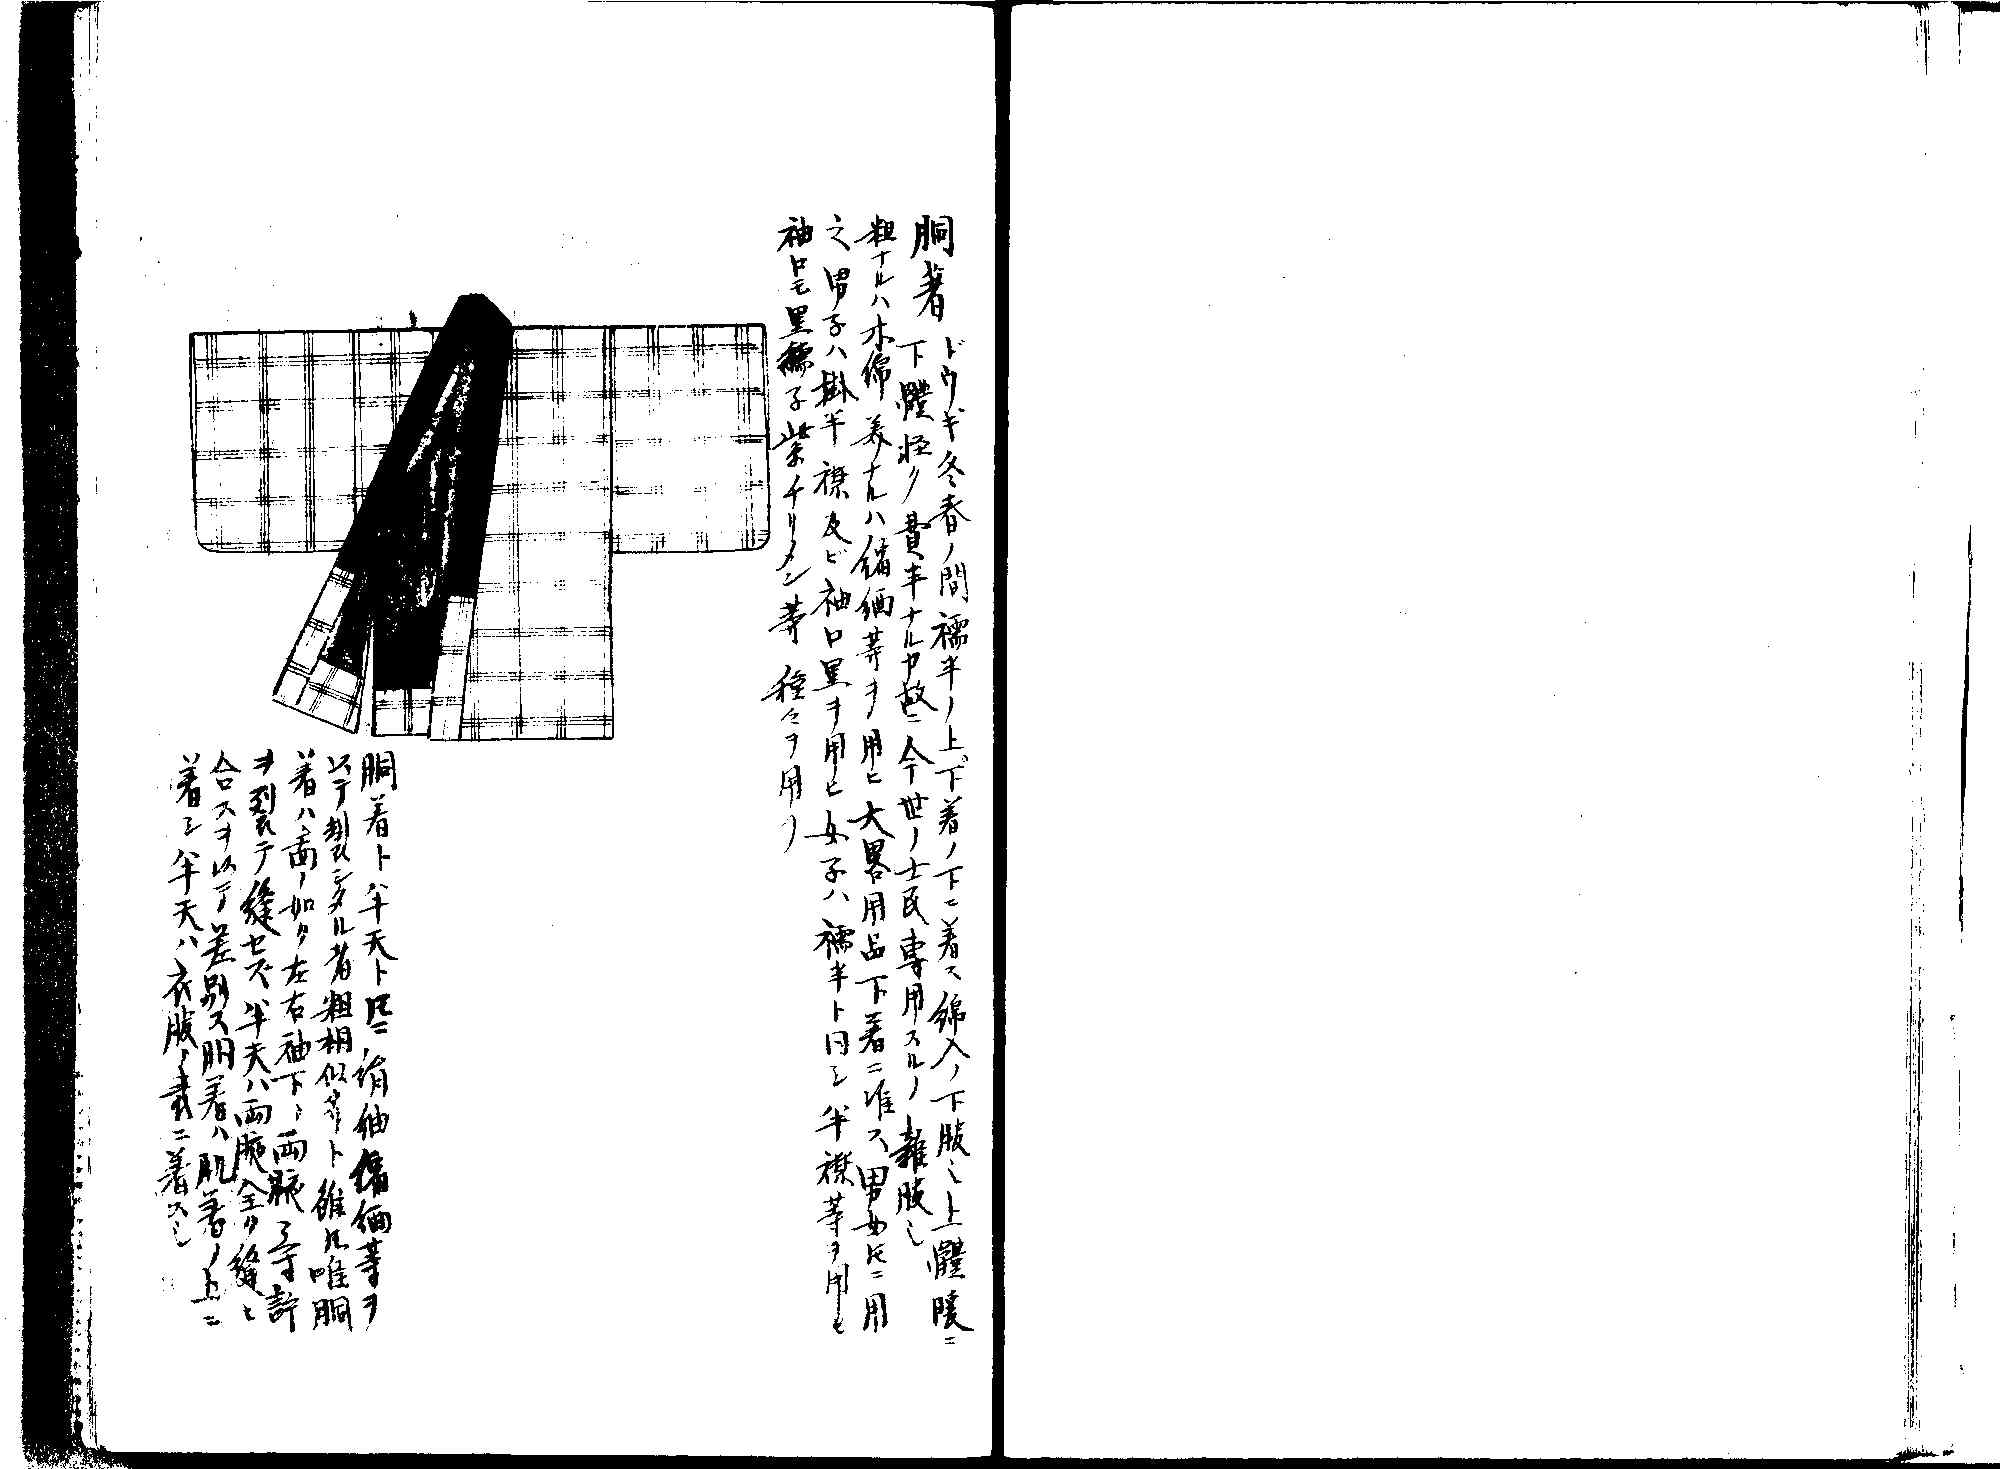 胴著 ドウギ冬春ノ間襦半ノ上下着ノ下ニ着ス綿入ノ下服也上體暖ニ
下體軽ク費半ナルカ故ニ今世ノ士民専用スルノ雑服也
粗ナルハ木綿美ナルハ縮緬等ヲ用ヒ大畧用品下著ニ准ス男女𪜈ニ用
之男子ハ掛半襟及ビ袖口黒ヲ用ヒ女子ハ襦半ト同シ半襟等ヲ用ヒ
袖口モ黒繻子紫チリメン等種々ヲ用フ
胴着ト半天ト𪜈ニ絹紬縮緬等ヲ
以テ製シタル者粗相似タリト雖𪜈唯胴
着ハ啚ノ如ク左右袖下ト両腋三寸許
ヲ裂テ縫セズ半天ハ両腋全ク縫ヒ
合スヲ以テ差別ス胴着ハ肌着ノ上ニ
着シ半天ハ衣服ノ表ニ着ス也